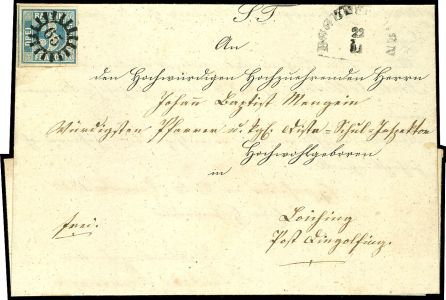 S. T.
An
den Hochwürdigen Hochzuehrenden Herrn
Johann Baptist Mengein
Würdigsten Pfarrer u. kgl. Distr.-Schul-Inspektor
Hochwohlgeboren
in
frei.
Loiching
Post Dingolfing.
22